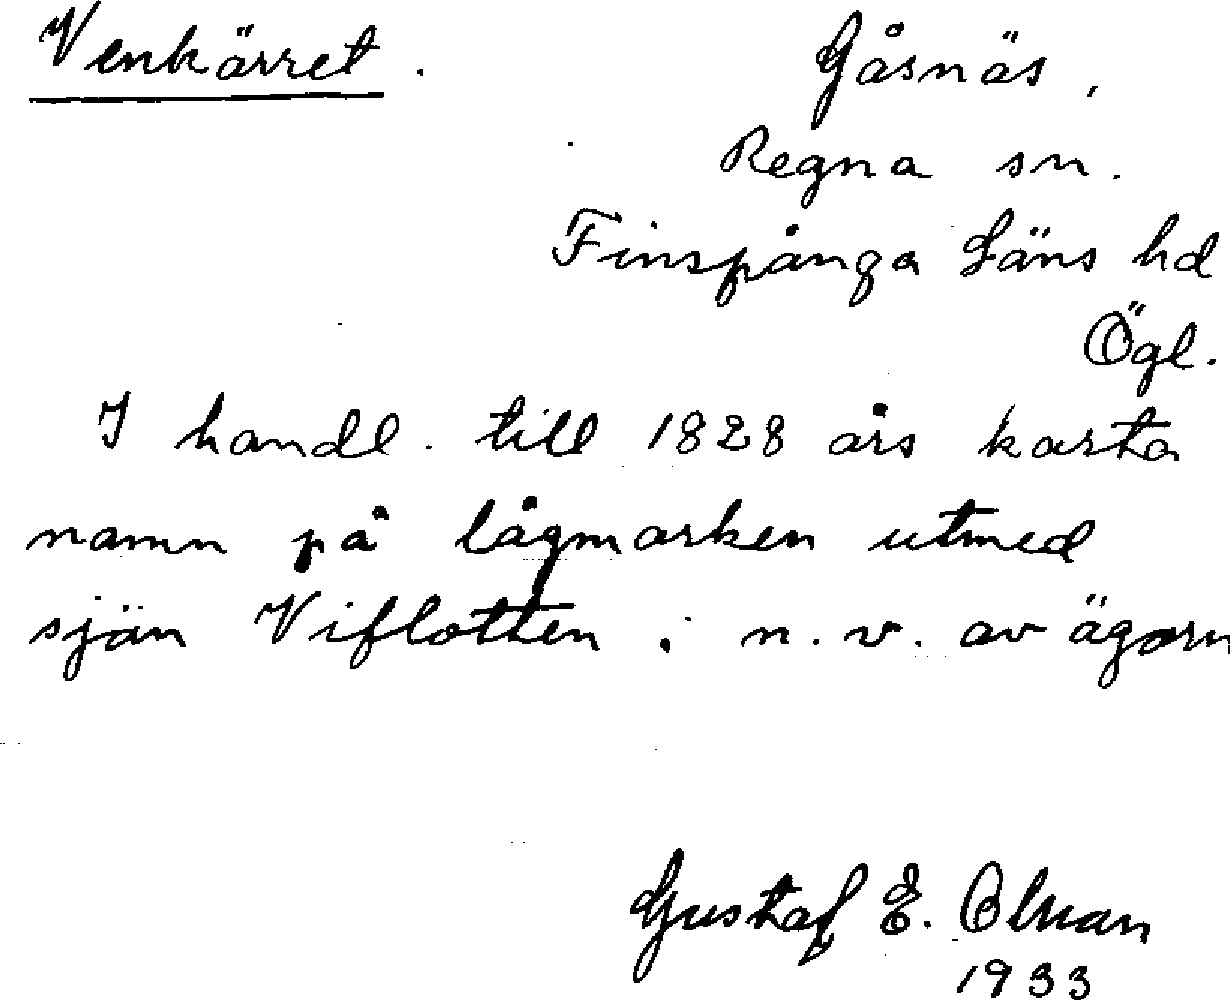 Venkärret.
Gåsnäs,
Regna sn.
Finspånga Läns hd
Ögl.
I handl. till 1828 års karta
namn på lågmarken utmed
sjön Viflotten i n. v. av ägorn
Gustaf E.
1933